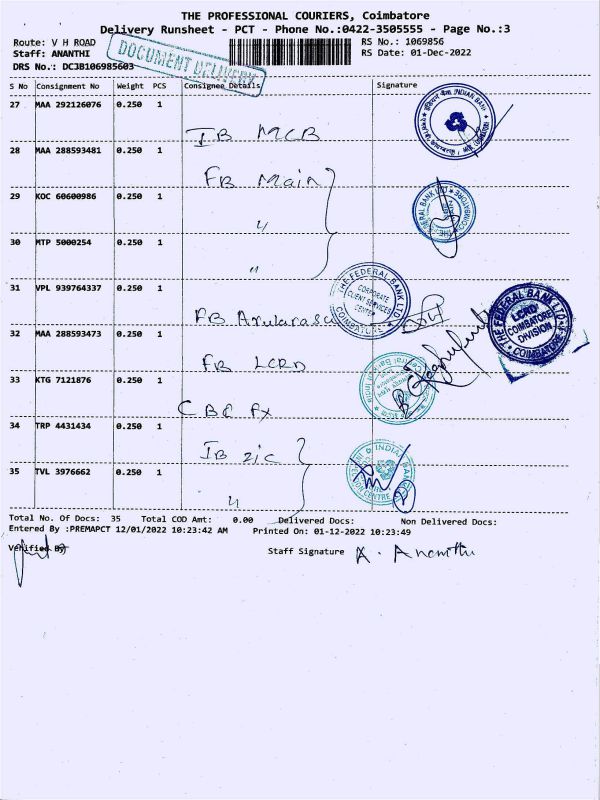 THE PROFESSIONAL COURIERS, Coimbatore
Delivery Runsheet - PCT - Phone No.:0422-3505555 - Page No.:3
Route: V H ROAD
RS No.: 1069856
Staff: ANANTHI
RS Date: 01-Dec-2022
DRS No.: DCJB106985603
DOCUMENT DELIVERY
S No Consignment No Weight PCS Consignee Details Signature
27 MAA 292126076 0.250 1
IB MCB
28 MAA 288593481 0.250 1
FB Main
29 KOC 60600986 0.250 1
"
30 MTP 5000254 0.250 1
"
31 VPL 939764337 0.250 1
FB Arularasu
THE FEDERAL BANK LTD
CORPORATE
CLIENT SERVICES
CENTER
COIMBATORE
THE FEDERAL BANK LTD
LCRD
COIMBATORE
DIVISION
COIMBATORE
32 MAA 288593473 0.250 1
FB LCRD
33 KTG 7121876 0.250 1
34 TRP 4431434 0.250 1
IB ZIC
35 TVL 3976662 0.250 1
"
Total No. Of Docs: 35 Total COD Amt: 0.00 Delivered Docs: Non Delivered Docs:
Entered By :PREMAPCT 12/01/2022 10:23:42 AM Printed On: 01-12-2022 10:23:49
Verified By
Staff Signature A. Ananthi